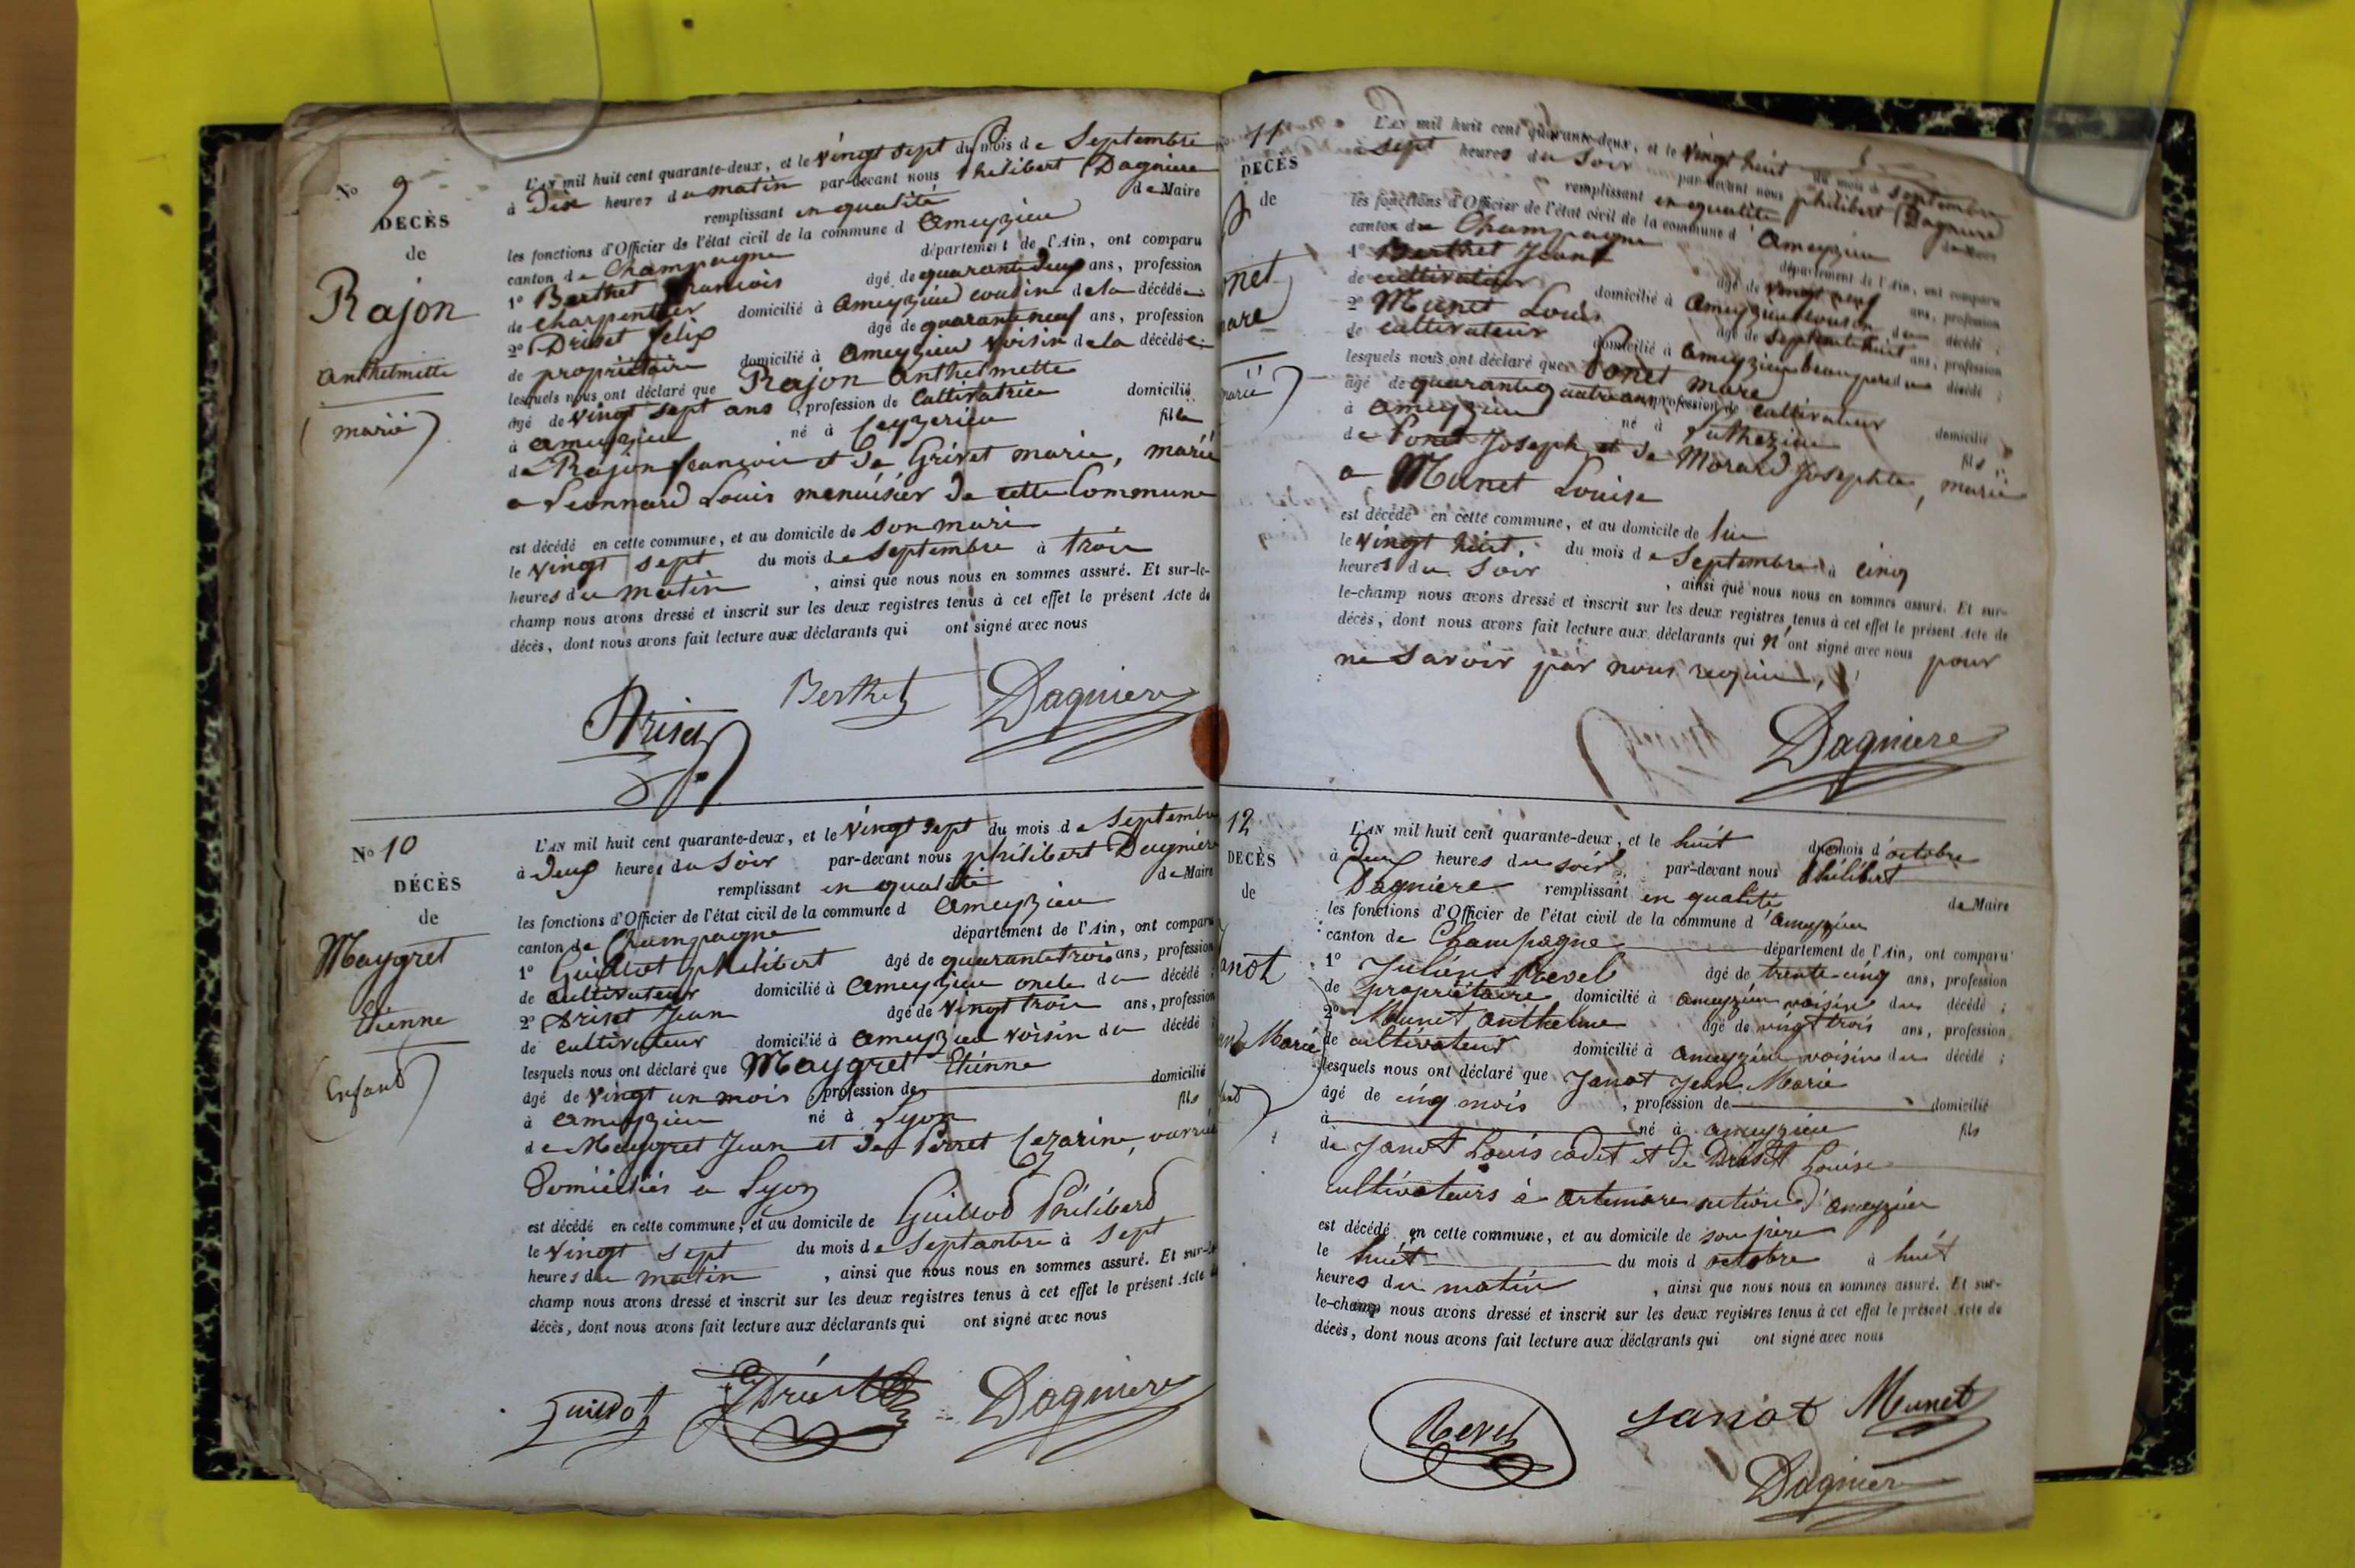 No 9
DECÈS
de
Rajon
anthelmette
(mariée)
L'AN mil huit cent quarante-deux, et le vingt sept du mois de Septembre
à Dix heures du matin par-devant nous philibert Dagniere
remplissant en qualité de Maire
les fonctions d'Officier de l'état civil de la commune d Ameyzieu
canton de Champagne département de l'Ain, ont comparu
1° Berthet françois âgé de quarante deux ans, profession
de charpentier domicilié à ameyzieu cousin de la décédée
2° Driset felix âgé de quarante neuf ans, profession
de propriétaire domicilié à ameyzieu voisin de la décédée;
lesquels nous ont déclaré que Rajon anthelmette
âgé de vingt sept ans, profession de Cultivatrice domicilié
à ameyzieu né à Ceyzerieu fille
de Rajon françois et de Grivet marie, mariée
a Leonnard Louis menuisier de cette Commune
est décédé en cette commune, et au domicile de son mari
le vingt sept du mois de Septembre à trois
heures du matin, ainsi que nous nous en sommes assuré. Et sur-le-
champ nous avons dressé et inscrit sur les deux registres tenus à cet effet le présent Acte de
décès, dont nous avons fait lecture aux déclarants qui ont signé avec nous
Driset Berthet Dagniere
No 10
DÉCÈS
de
Maygret
Etienne
(Enfant)
L'AN mil huit cent quarante-deux, et le vingt sept du mois de Septembre
à Deux heures du Soir par-devant nous philibert Dagniere
remplissant en qualité de Maire
les fonctions d'Officier de l'état civil de la commune d ameyzieu
canton de Champagne département de l'Ain, ont comparu
1° Guillot philibert âgé de quarante trois ans, profession
de cultivateur domicilié à ameyzieu oncle du décédé;
2° Driset Jean âgé de vingt trois ans, profession
de cultivateur domicilié à ameyzieu voisin du décédé;
lesquels nous ont déclaré que Maygret Etienne
âgé de vingt un mois, profession de domicilié
à ameyzieu né à Lyon fils
de Maygret Jean et de Perret Cezarine,
domiciliés a Lyon
est décédé en cette commune, et au domicile de Guillod Philiberd
le vingt sept du mois de Septembre à sept
heures du matin, ainsi que nous nous en sommes assuré. Et sur-le-
champ nous avons dressé et inscrit sur les deux registres tenus à cet effet le présent Acte de
décès, dont nous avons fait lecture aux déclarants qui ont signé avec nous
Guillot Driset Dagniere
11
DECÈS
de
onet
marc
marié)
L'AN mil huit cent quarante-deux, et le vingt huit du mois de septembre
à sept heures du Soir par-devant nous philibert Dagniere
remplissant en qualité de Maire
les fonctions d'Officier de l'état civil de la commune d'Ameyzieu
canton de Champagne département de l'Ain, ont comparu
1° Berthet Jean âgé de vingt neuf ans, profession
de cultivateur domicilié à Ameyzieu cousin du décédé;
2° Munet Louis âgé de septante huit ans, profession
de cultivateur domicilié à ameyzieu beaupere du décédé;
lesquels nous ont déclaré que Ponet marc
âgé de quarante quatre ans profession de cultivateur domicilié
à ameyzieu né à Luthezieu fils
de Ponet Joseph et de Morard Josephte, marié
a Munet Louise
est décédé en cette commune, et au domicile de lui
le vingt huit, du mois de Septembre à cinq
heures du Soir, ainsi que nous nous en sommes assuré. Et sur-
le-champ nous avons dressé et inscrit sur les deux registres tenus à cet effet le présent Acte de
décès, dont nous avons fait lecture aux déclarants qui n'ont signé avec nous pour
ne savoir par nous requis,
Dagniere
12
DECÈS
de
anot
Marie
L'AN mil huit cent quarante-deux, et le huit du mois d'octobre
à Deux heures du soir, par-devant nous Philibert
Dagniere remplissant en qualité de Maire
les fonctions d'Officier de l'état civil de la commune d'Ameyzieu
canton de Champagne département de l'Ain, ont comparu
1° Juliens Revel âgé de trente-cinq ans, profession
de propriétaire domicilié à ameyzieu voisin du décédé;
2° Munet anthelme âgé de vingt trois ans, profession
de cultivateur domicilié à ameyzieu voisin du décédé;
lesquels nous ont déclaré que Janot Jean Marie
âgé de cinq mois, profession de domicilié
à né à ameyzieu fils
de Janot Louis cadet et de Driset Louise
cultivateurs à artemare section d'ameyzieu
est décédé en cette commune, et au domicile de son père
le huit du mois d octobre à huit
heures du matin, ainsi que nous nous en sommes assuré. Et sur-
le-champ nous avons dressé et inscrit sur les deux registres tenus à cet effet le présent Acte de
décès, dont nous avons fait lecture aux déclarants qui ont signé avec nous
Revel Janot Munet
Dagniere